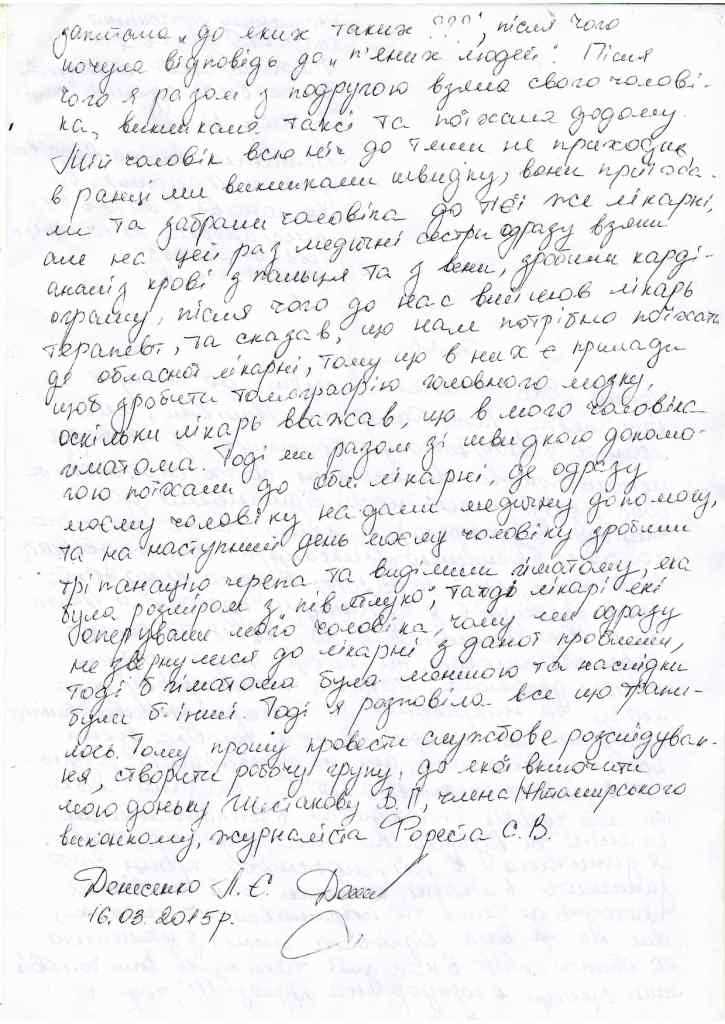 запитала „до яких таких ???", після чого
почула відповідь до „п'яних людей". Після
чого я разом з подругою взяла свого чолові-
ка, викликала таксі та поїхала додому.
Мій чоловік всю ніч до тями не приходив,
в ранці ми викликали швидку, вони приїха-
ли та забрали чоловіка до тієї же лікарні,
але на цей раз медичні сестри одразу взяли
аналіз крові з пальця та з вени, зробили карді-
ограму, після чого до нас вийшов лікарь
терапевт, та сказав, що нам потрібно поїхать
до обласної лікарні, тому що в них є прилади
щоб зробити томографію головного мозку,
оскільки лікарь вважав, що в мого чоловіка
гіматома. Тоді ми разом зі швидкою допомо-
гою поїхали до обл. лікарні, де одразу
моєму чоловіку надали медичну допомогу,
та на наступний день моєму чоловіку зробили
тріпанацію черепа та виділили гіматому, яка
була розміром з пів яблука, тоді лікарі які
оперували мого чоловіка, чому ми одразу
не звернулися до лікарні з даної проблеми,
тоді б гіматома була меншою та наслідки
були б інші. Тоді я розповіла все що трапи-
лось. Тому прошу провести службове розслідуван-
ня, створити робочу групу, до якої включити
мою доньку Шестакову В.П, члена Житомирського
виконкому, журналіста Фореста С.В.
Денисенко Л.Є.
16.03.2015р.